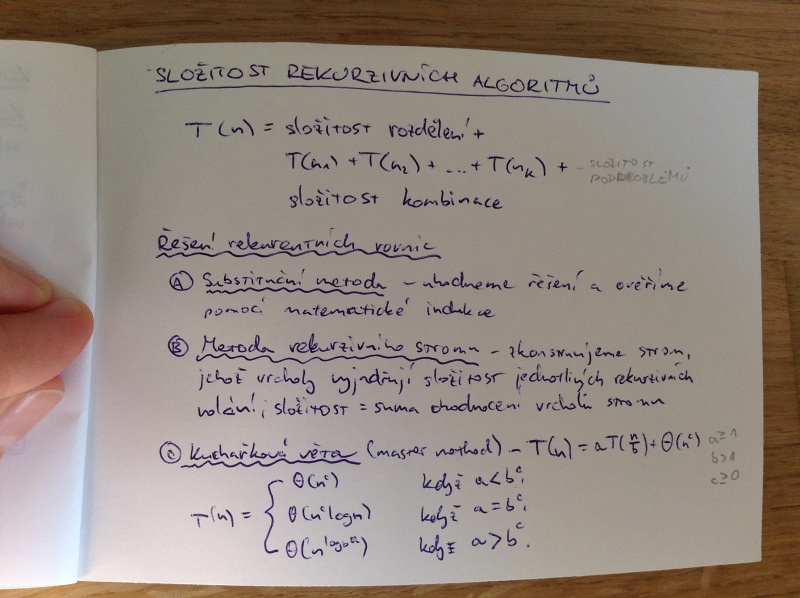 SLOŽITOST REKURZIVNÍCH ALGORITMŮ
T(n) = složitost rozdělení +
T(n₁) + T(n₂) + ... + T(nₖ) + - SLOŽITOST
PODPROBLÉMŮ
složitost kombinace
Řešení rekurentních rovnic
Ⓐ Substituční metoda – uhodneme řešení a ověříme
pomocí matematické indukce
Ⓑ Metoda rekurzivního stromu – zkonstruujeme strom,
jehož vrcholy vyjadřují složitost jednotlivých rekurzivních
volání; složitost = suma ohodnocení vrcholů stromu
Ⓒ Kuchařková věta (master method) – T(n) = aT(n/b) + Θ(nᶜ) a≥1
b>1
c≥0
Θ(nᶜ) když a < bᶜ;
T(n) = { Θ(nᶜ log n) když a = bᶜ;
Θ(n^(log_b a)) když a > bᶜ.